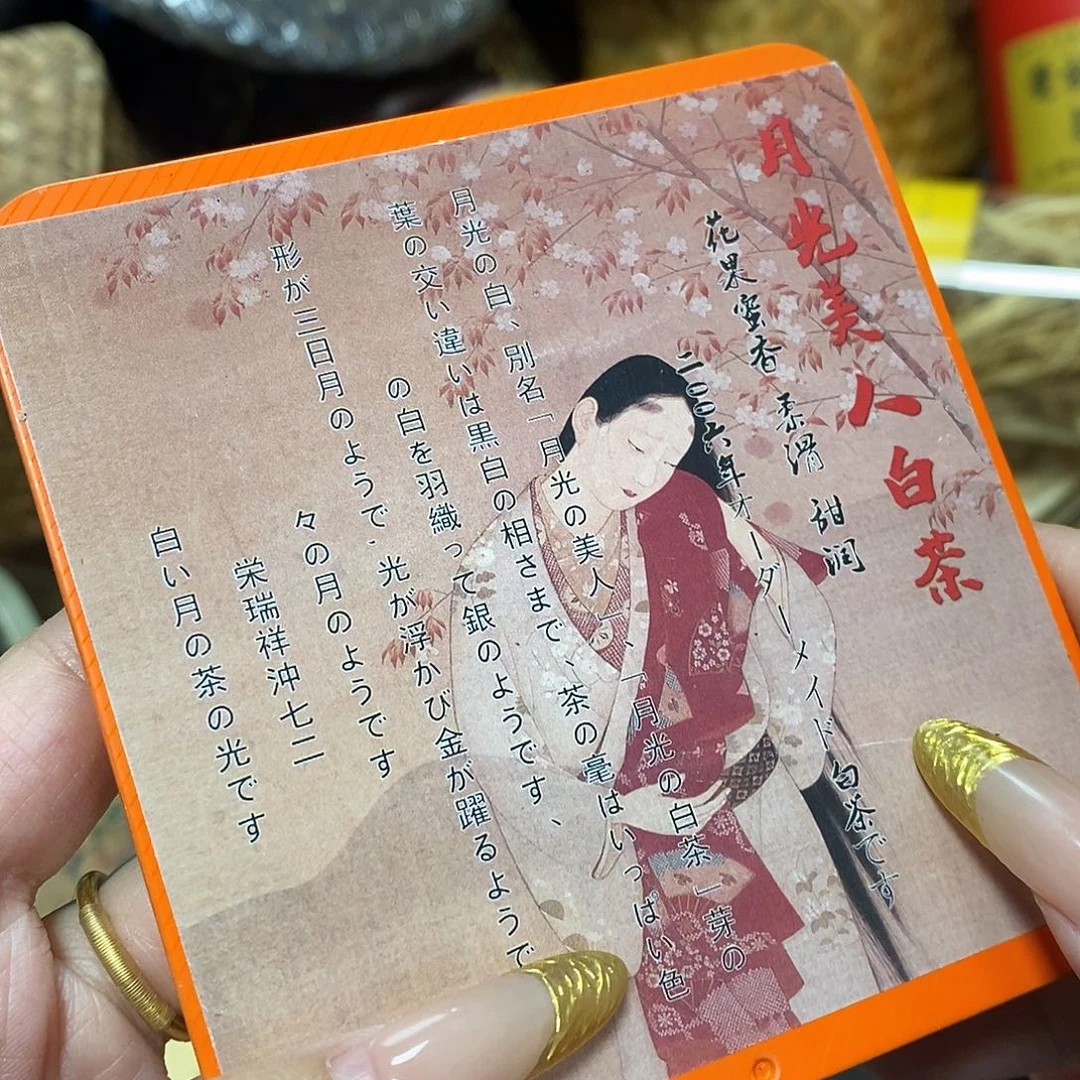 月光美人白茶
花果蜜香 柔滑 甜润
二〇〇六年オーダーメイド白茶です
月光の白、別名「月光の美人」、「月光の白茶」芽の
葉の交い違いは黒白の相さまで、茶の毫はいっぱい色
の白を羽織って銀のようです、
形が三日月のようで、光が浮かび金が躍るようで
々の月のようです
栄瑞祥沖七二
白い月の茶の光です